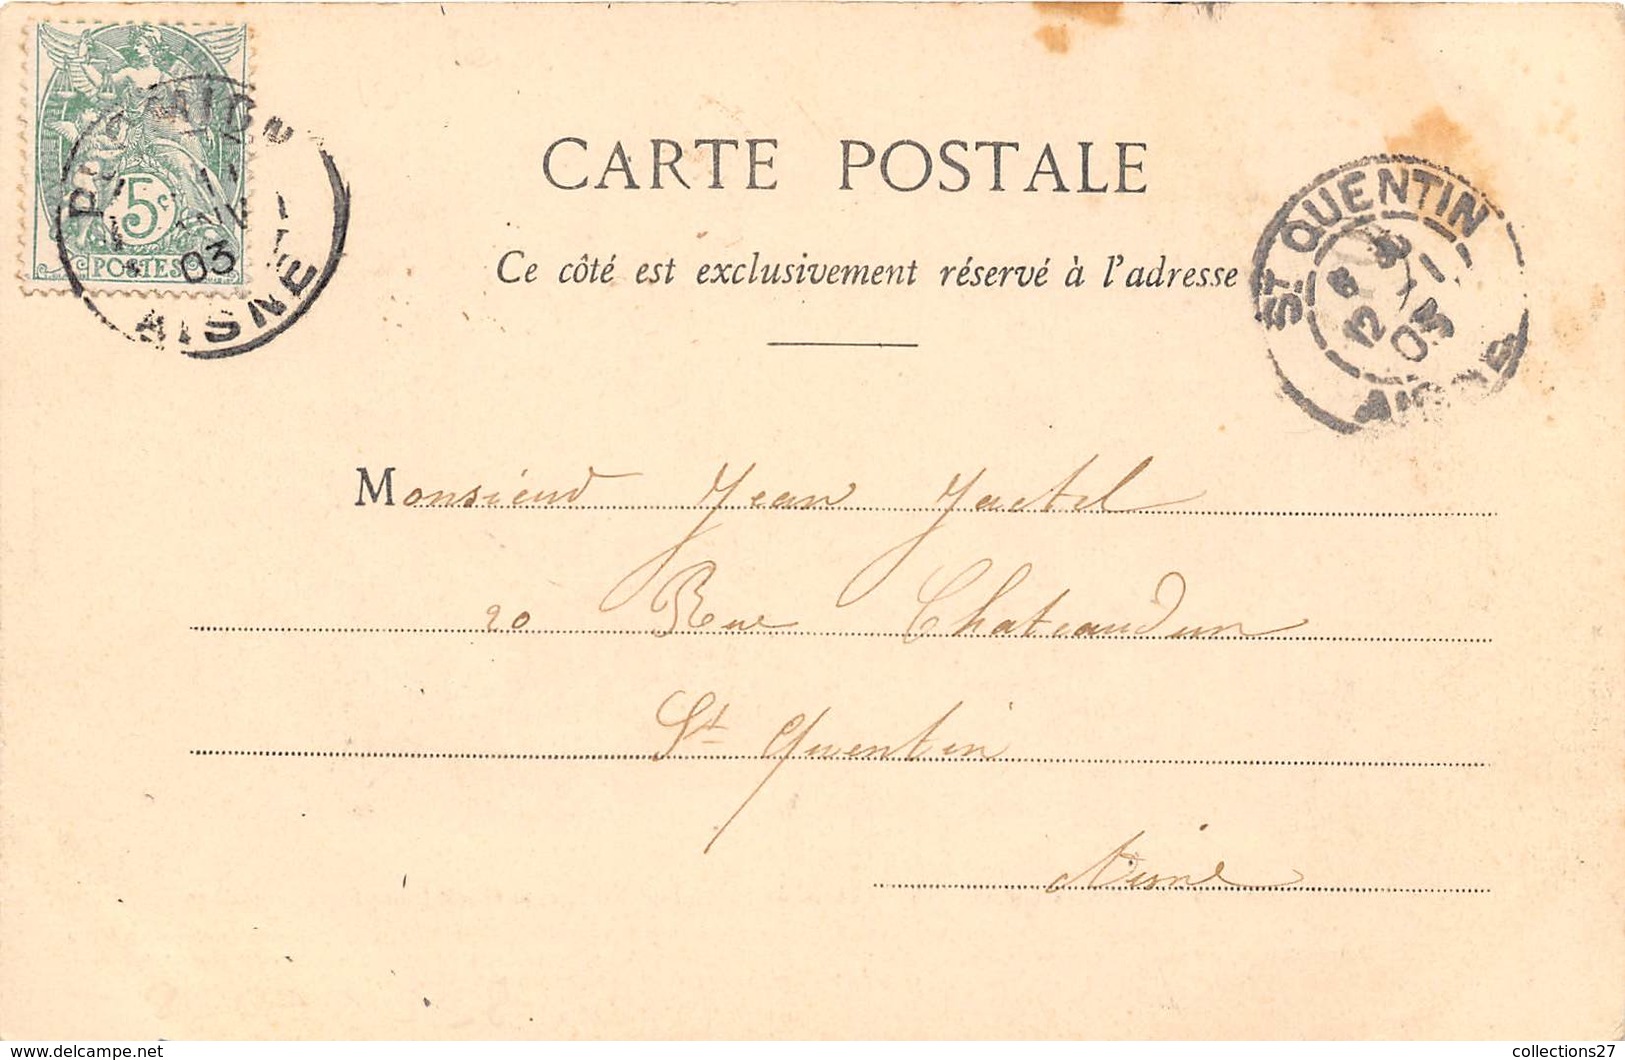 5c
POSTES
03
AISNE
CARTE POSTALE
Ce côté est exclusivement réservé à l'adresse
ST QUENTIN
12 -1
03
AISNE
Monsieur Jean
20 Rue Chateaudun
St Quentin
Aisne
collections27